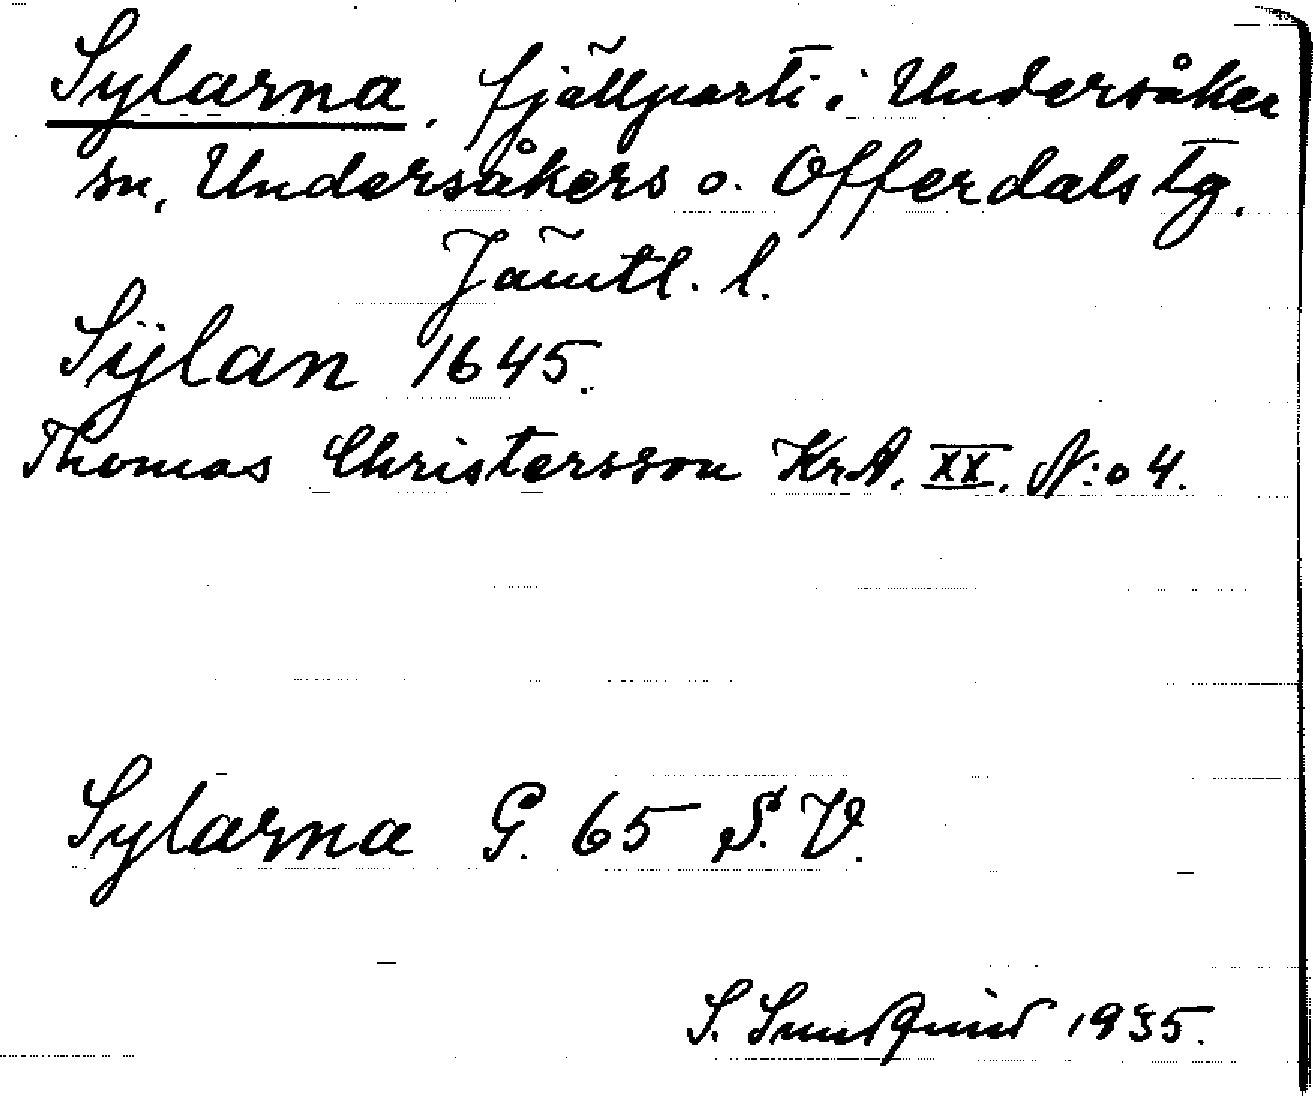 Sylarna, fjällparti i Undersåker
sn, Undersåkers o. Offerdals tg.
Jämtl. l.
Sÿlan 1645.
Thomas Christersson KrA. XX. N:o 4.
Sylarna G. 65 S.V.
S. Sundqvist 1935.